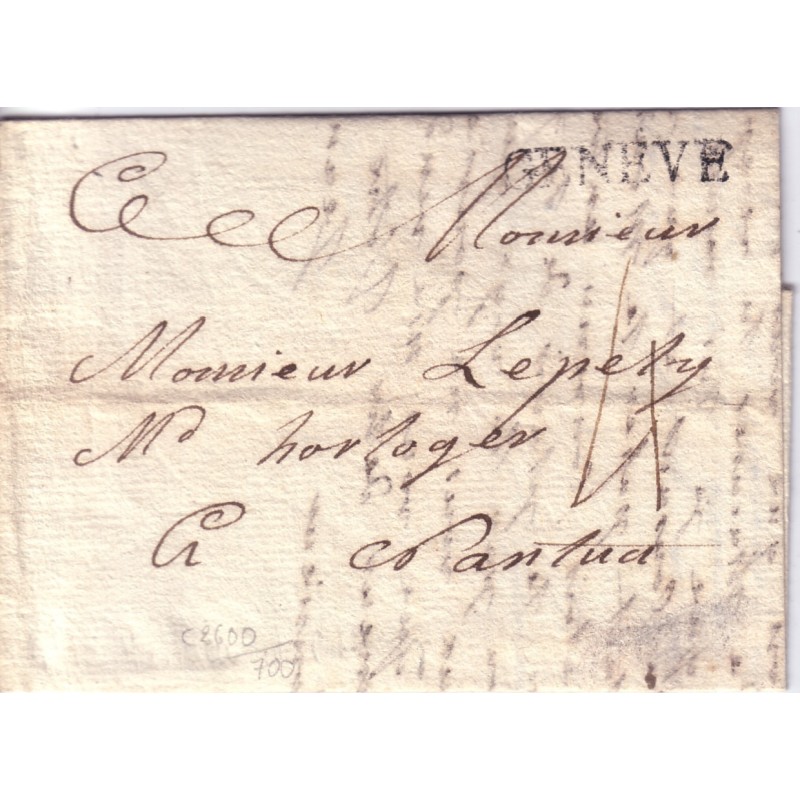 GENEVE
A Monsieur
Monsieur Lepely
Md horloger
A Nantua
C 2600
700